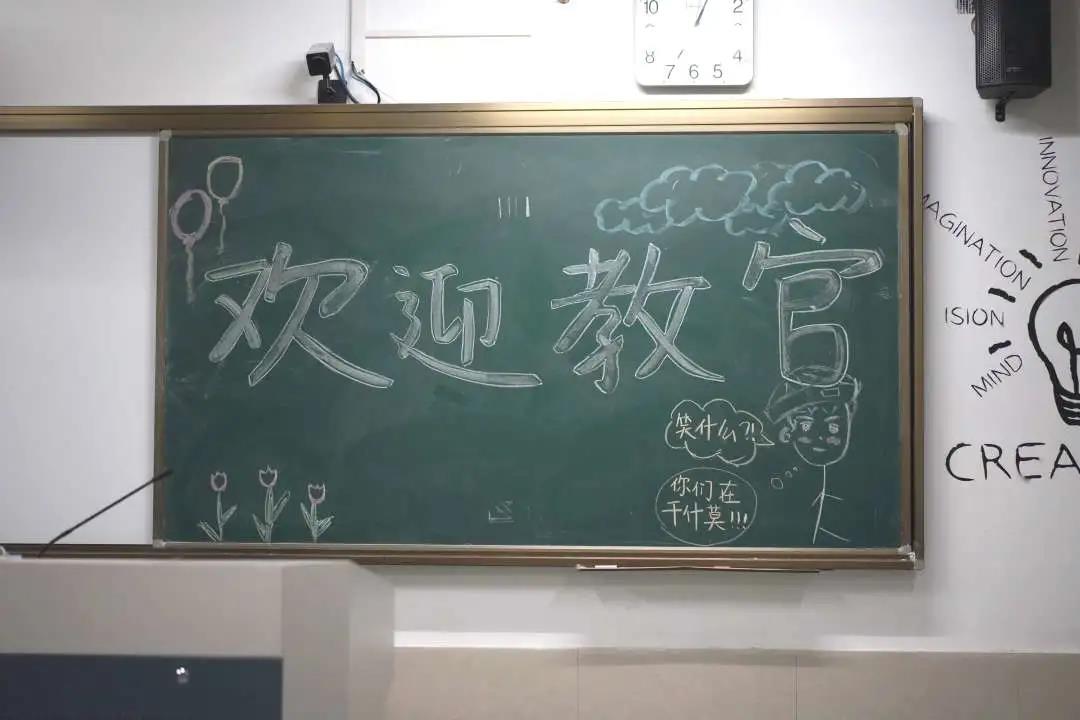 欢迎教官
笑什么?!
你们在
干什莫!!!
10
2
8
4
7 6 5
INNOVATION
MAGINATION
ISION
MIND
CREA